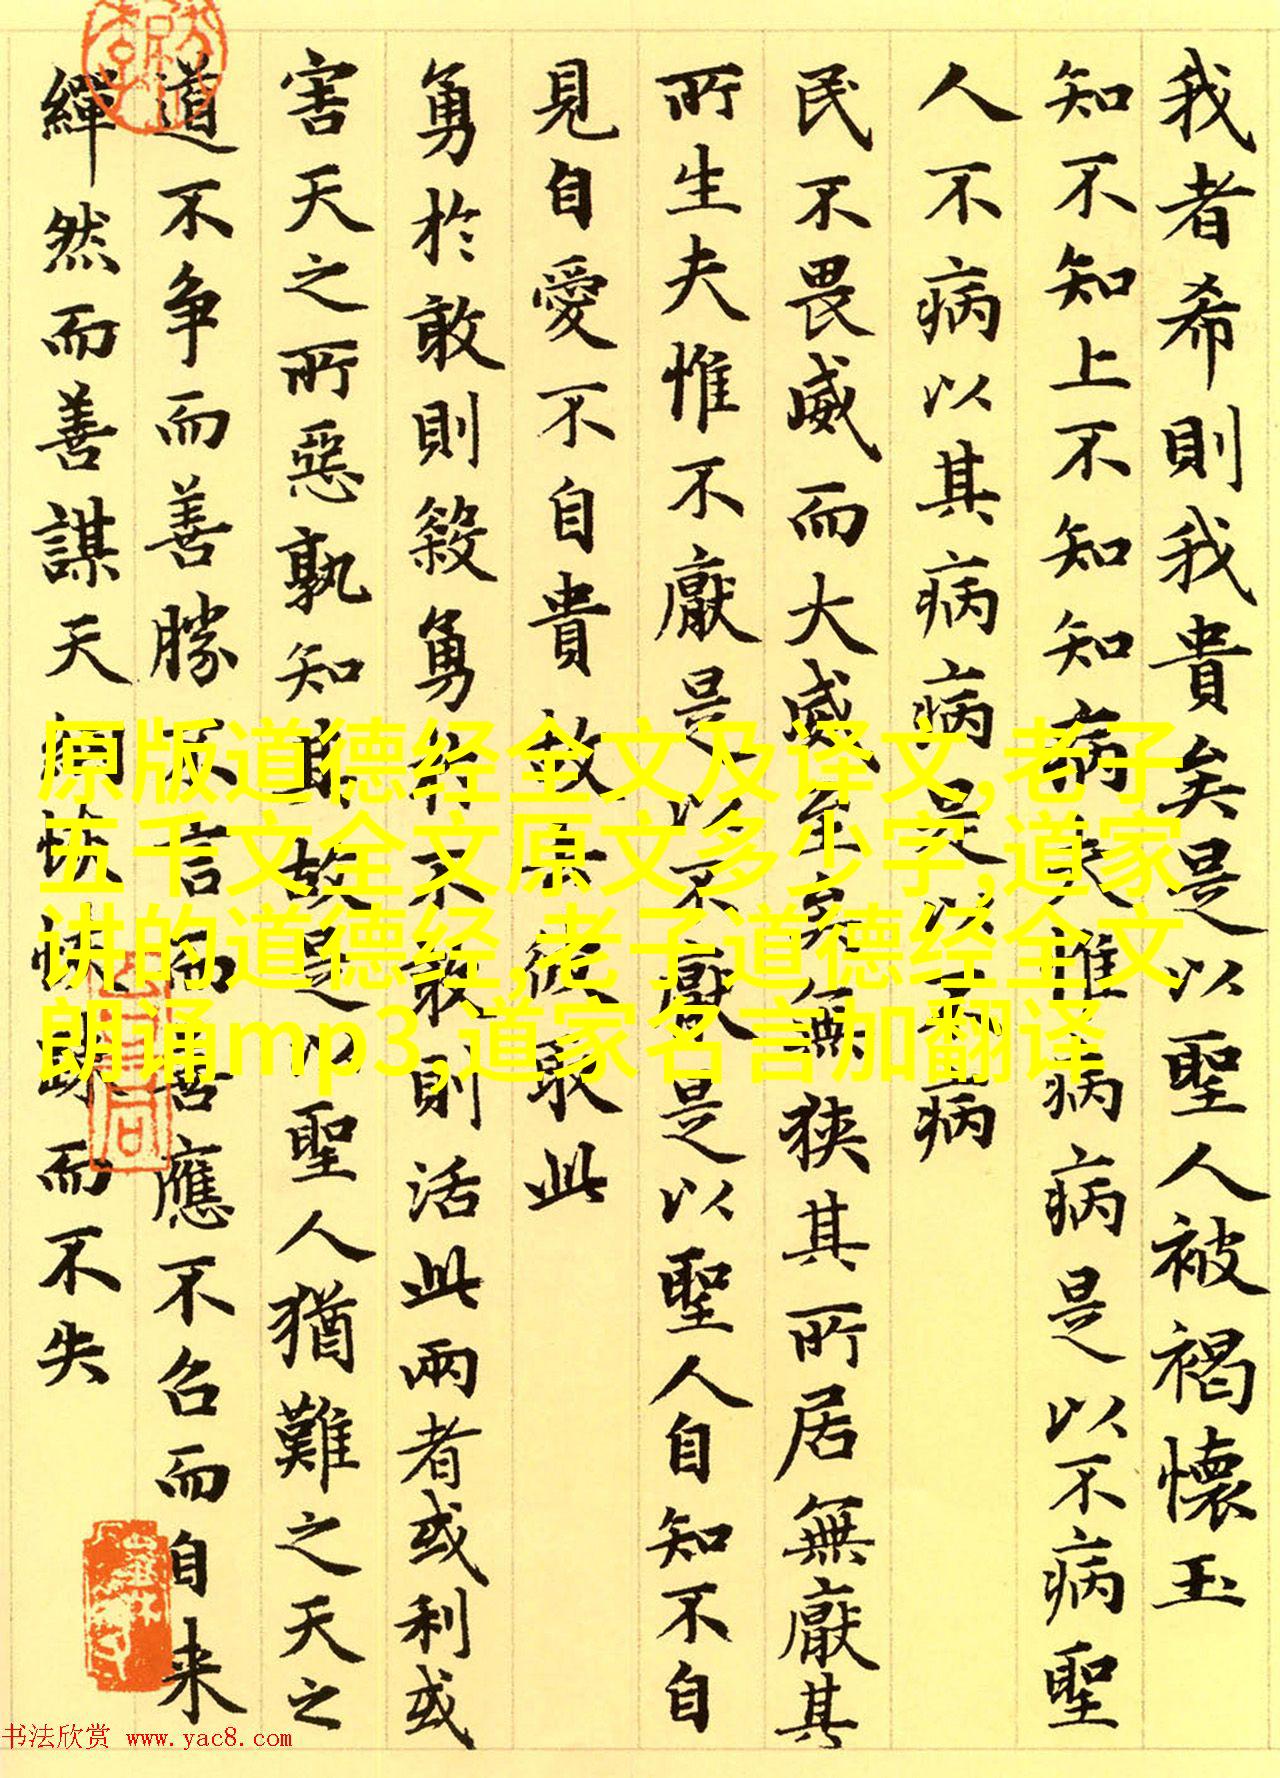 我者希則我貴矣是以聖人被褐懷玉
知不知上不知知病夫惟病病是以不病聖
人不病以其病病是以不病
民不畏威而大威至矣無狹其所居無厭其
所生夫惟不厭是以不厭是以聖人自知不自
見自愛不自貴故去彼取此
勇於敢則殺勇於不敢則活此兩者或利或
害天之所惡孰知其故是以聖人猶難之天之
道不争而善勝不言而善應不召而自来
繟然而善謀天網恢恢踈而不失
原版道德经全文及译文,老子
五千文全文原文多少字,道家
讲的道德经,老子道德经全文
朗诵mp3,道家名言加翻译
书法欣赏 www.yac8.com